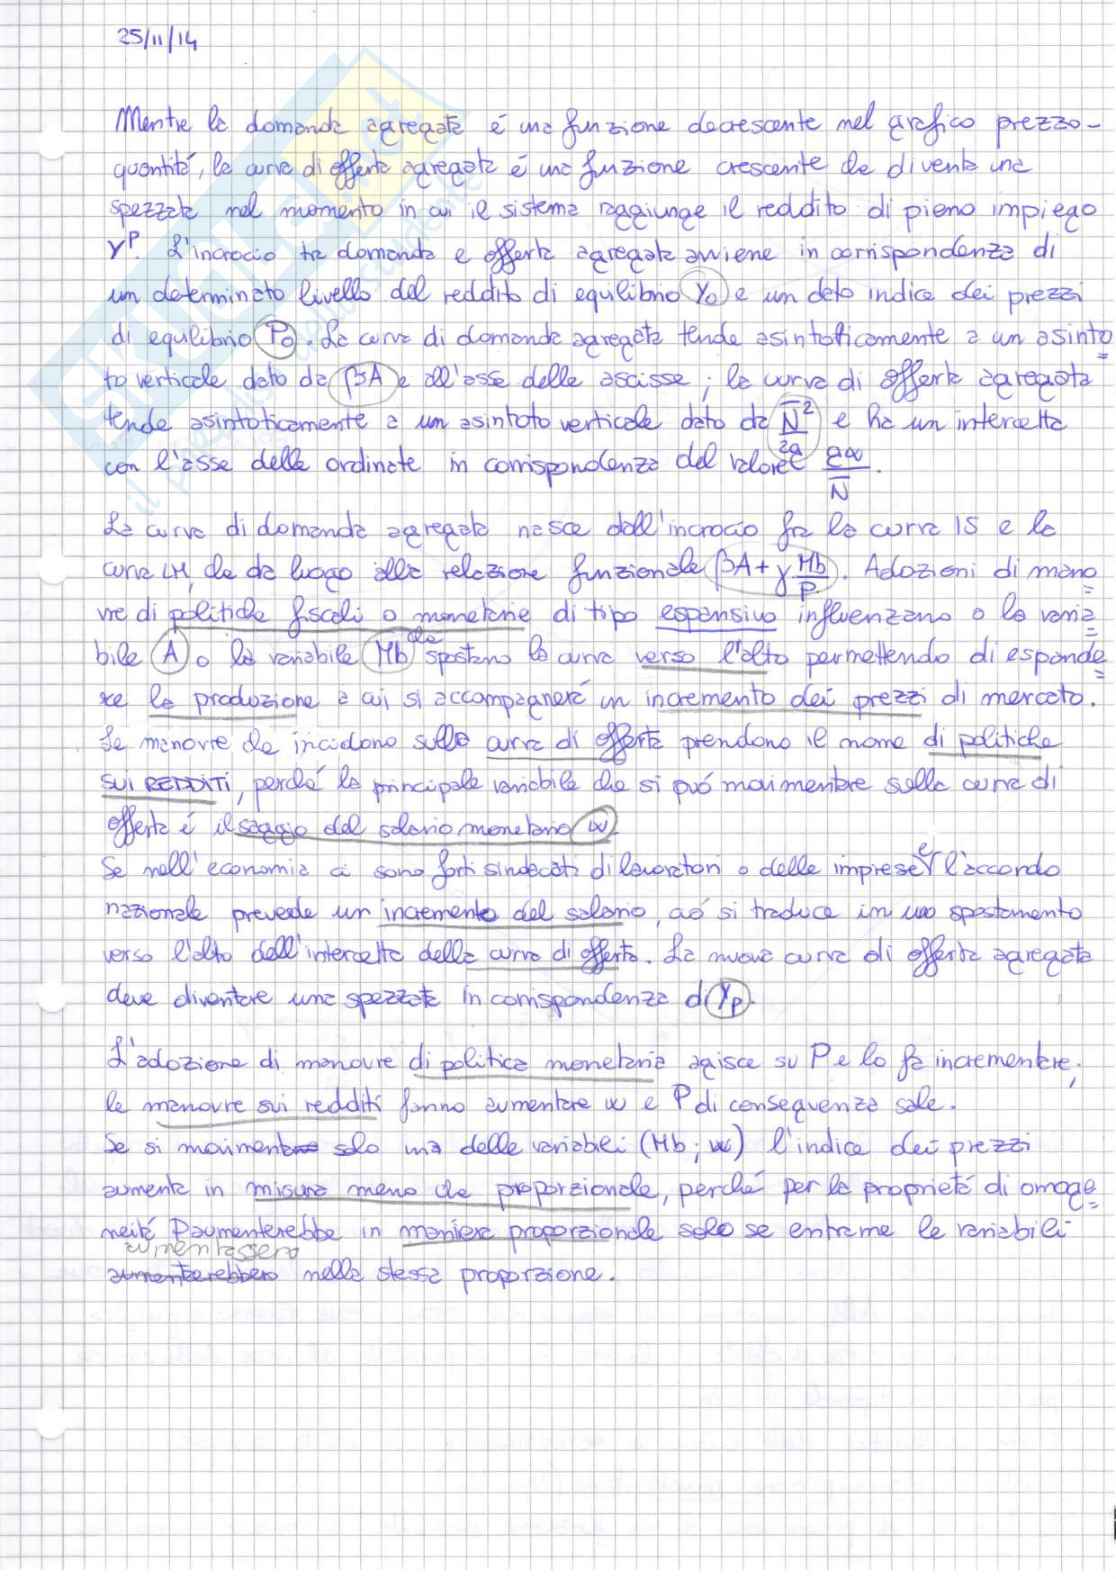 25/11/14
Mentre la domanda agregata é una funzione decrescente nel grafico prezzo-
quantitá, la curva di offerta agregata é una funzione crescente che diventa una
spezzata nel momento in cui il sistema raggiunge il reddito di pieno impiego
Y^P. L'incrocio tra domanda e offerta agregata avviene in corrispondenza di
un determinato livello del reddito di equilibrio Y₀ e un dato indice dei prezzi
di equilibrio P₀. La curva di domanda agregata tende asintoticamente a un asinto
to verticale dato da βA e all'asse delle ascisse; la curva di offerta agregata
tende asintoticamente a un asintoto verticale dato da N̅²/2a e ha un intercetta
con l'asse delle ordinate in corrispondenza del valore
La curva di domanda agregata nasce dall'incrocio fra la curva IS e la
curva LM, che da luogo alla relazione funzionale βA+γ Mb/P. Adozioni di mano
vre di politiche fiscali o monetarie di tipo espansivo influenzano o la varia
bile A o la variabile Mb che spostano la curva verso l'alto permettendo di espande
re la produzione a cui si accompagnerá un incremento dei prezzi di mercato.
Le manovre che incidono sulla curva di offerta prendono il nome di politiche
SUI REDDITI, perché la principale variabile che si puó movimentare sulla curva di
offerta é il saggio del salario monetario w.
Se nell'economia ci sono forti sindacati di lavoratori o delle imprese e l'accordo
nazionale prevede un incremento del salario, ció si traduce in uno spostamento
verso l'alto dell'intercetta della curva di offerta. La nuova curva di offerta agregata
deve diventare una spezzata in corrispondenza di Yp.
L'adozione di manovre di politica monetaria agisce su P e lo fa incrementare;
le manovre sui redditi fanno aumentare w e P di conseguenza sale.
Se si movimenta solo una delle variabili (Mb; w) l'indice dei prezzi
aumenta in misura meno che proporzionale, perché per la proprietá di omoge
neitá P aumenterebbe in maniera proporzionale solo se entrambe le variabili
aumentassero
aumenterebbero nella stessa proporzione.